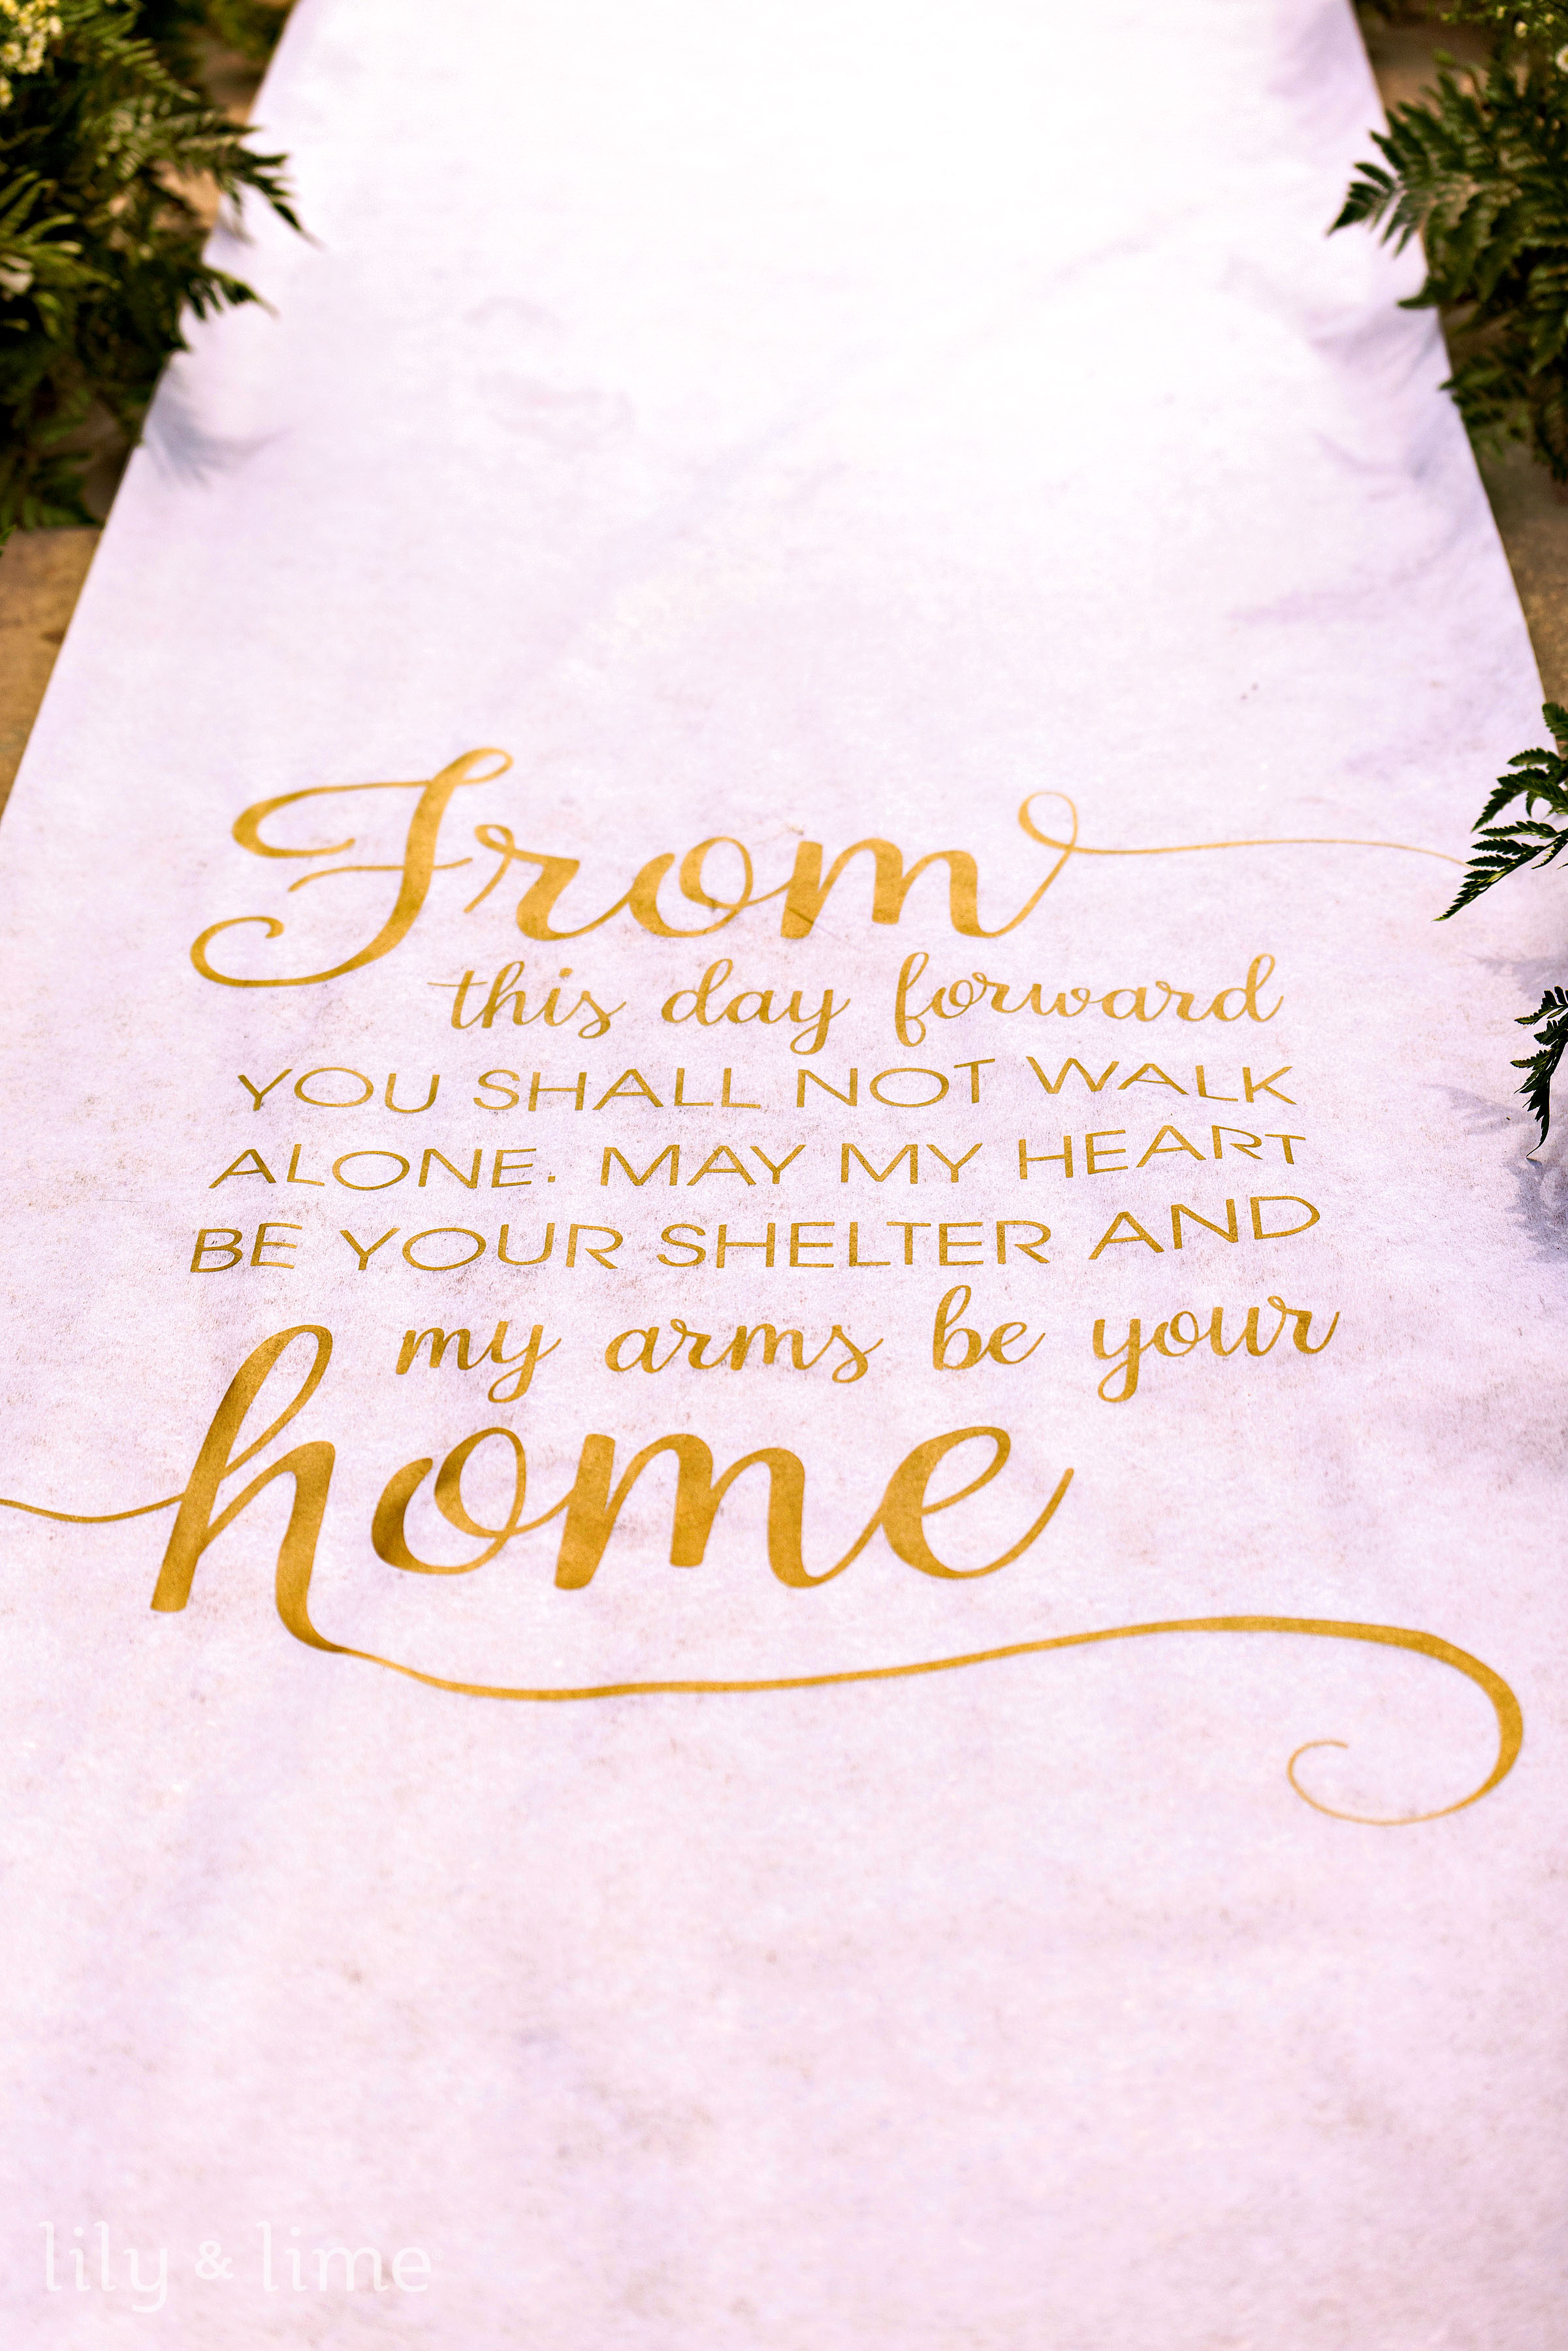 From
this day forward
YOU SHALL NOT WALK
ALONE. MAY MY HEART
BE YOUR SHELTER AND
my arms be your
home
lily & lime